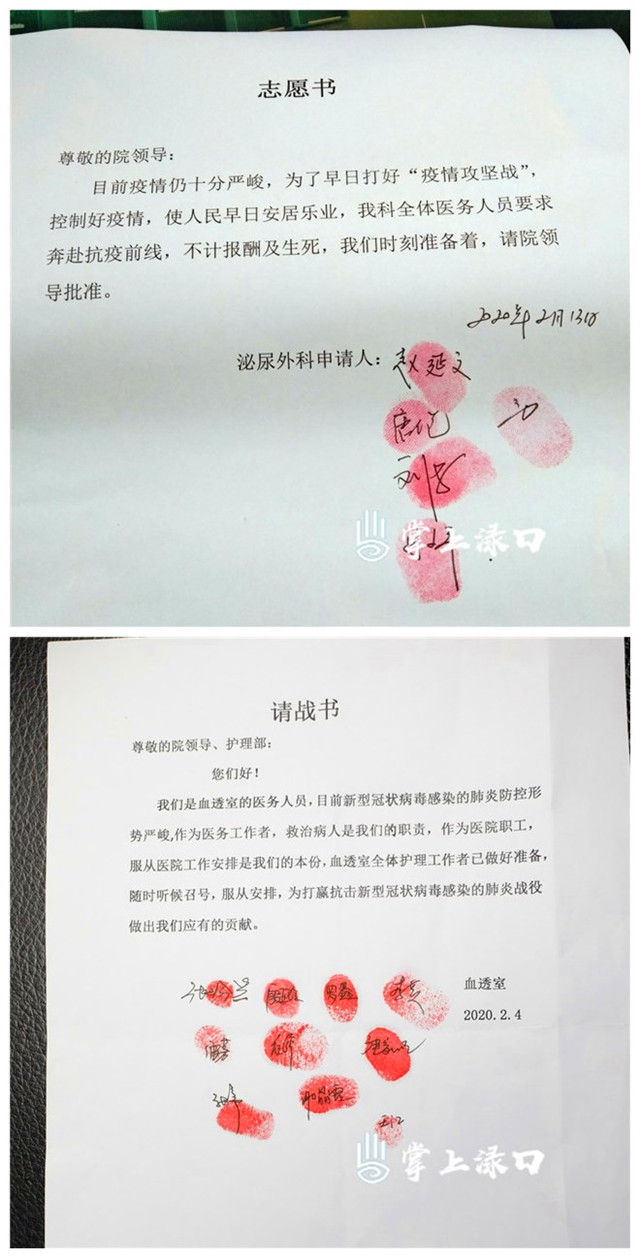 志愿书
尊敬的院领导：
目前疫情仍十分严峻，为了早日打好“疫情攻坚战”，
控制好疫情，使人民早日安居乐业，我科全体医务人员要求
奔赴抗疫前线，不计报酬及生死，我们时刻准备着，请院领
导批准。
2020年2月13日
泌尿外科申请人：赵延文
掌上渌口
请战书
尊敬的院领导、护理部：
您们好！
我们是血透室的医务人员，目前新型冠状病毒感染的肺炎防控形
势严峻,作为医务工作者，救治病人是我们的职责，作为医院职工，
服从医院工作安排是我们的本份，血透室全体护理工作者已做好准备，
随时听候召号，服从安排，为打赢抗击新型冠状病毒感染的肺炎战役
做出我们应有的贡献。
血透室
2020.2.4
掌上渌口